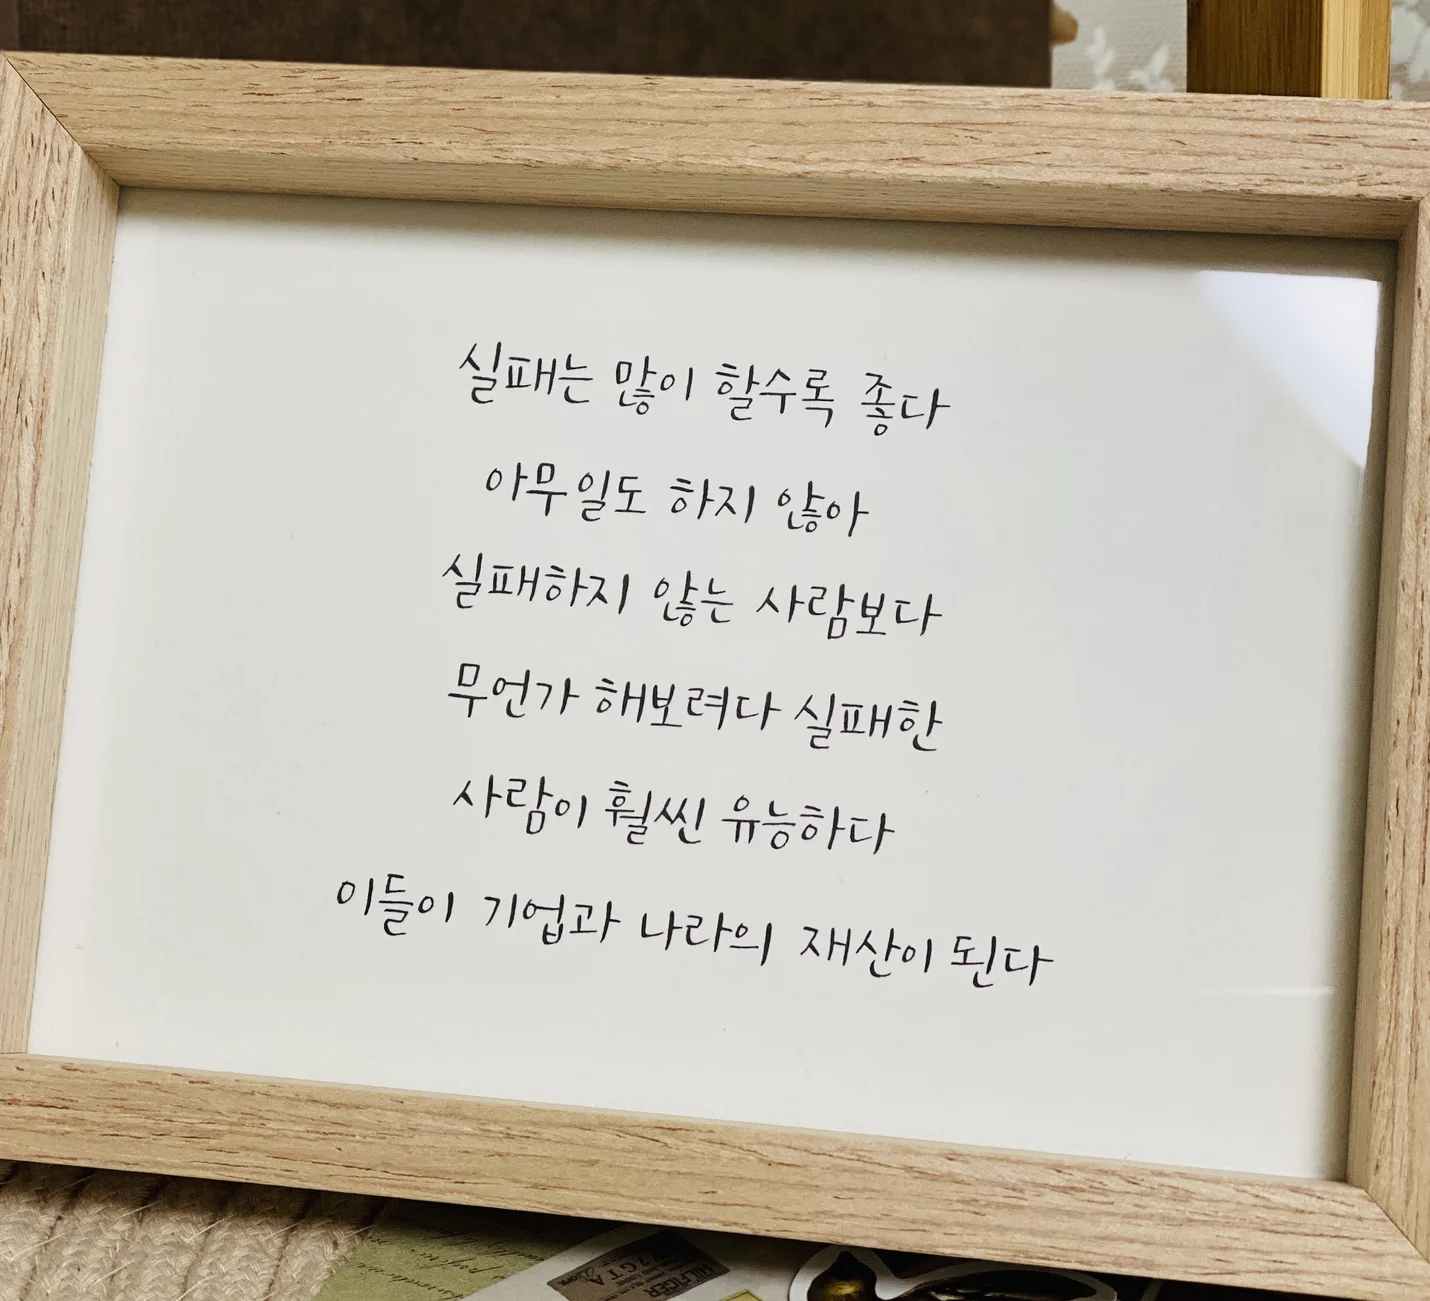 실패는 많이 할수록 좋다
아무일도 하지 않아
실패하지 않는 사람보다
무언가 해보려다 실패한
사람이 훨씬 유능하다
이들이 기업과 나라의 재산이 된다